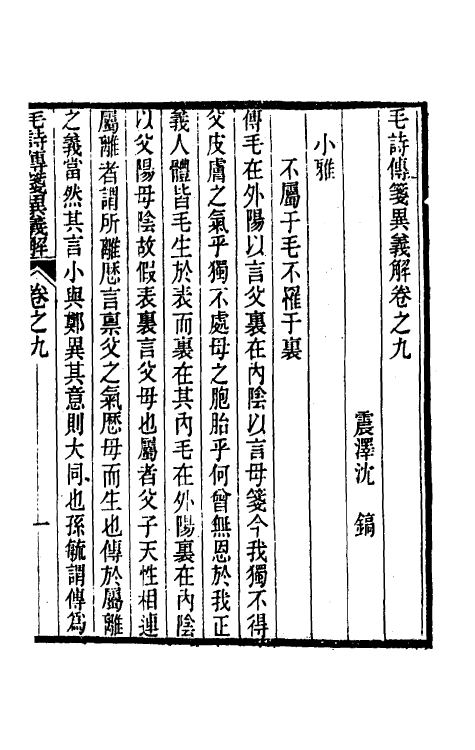 毛詩傳箋異義解卷之九
震澤沈 鎬
小雅
不屬于毛不罹于裏
傳毛在外陽以言父裏在內陰以言母箋今我獨不得
父皮膚之氣乎獨不處母之胞胎乎何曾無恩於我正
義人體皆毛生於表而裏在其內毛在外陽裏在內陰
以父陽母陰故假表裏言父母也屬者父子天性相連
屬離者謂所離歷言稟父之氣歷母而生也傳於屬離
之義當然其言小與鄭異其意則大同也孫毓謂傳爲
毛詩傳箋異義解 卷之九 一